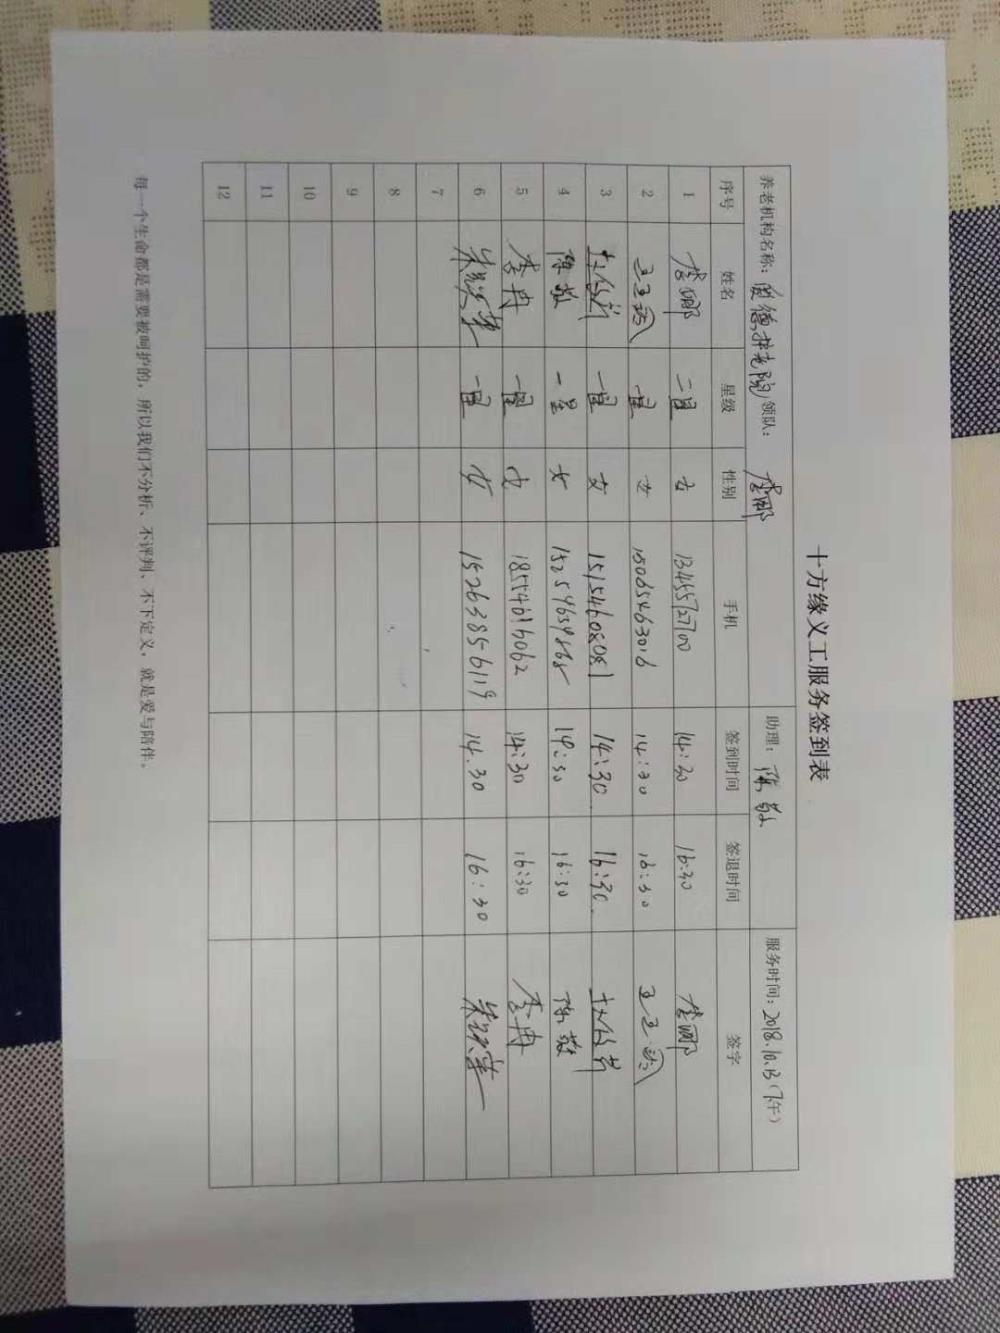 十方缘义工服务签到表
养老机构名称： 德养老院 领队： 李娜 助理： 陈敬 服务时间：2018.10.13（下午）
序号 姓名 星级 性别 手机 签到时间 签退时间 签字
1 李娜 二星 女 13455727700 14:30 16:30 李娜
2 一星 女 15065463016 14:30 16:30
3 一星 女 15154608081 14:30 16:30
4 陈敬 一星 女 15254639868 14:30 16:30 陈敬
5 李冉 一星 女 18554616062 14:30 16:30 李冉
6 一星 女 15263856119 14.30 16:30
7
8
9
10
11
12
每一个生命都是需要被呵护的，所以我们不分析、不评判、不下定义，就是爱与陪伴。